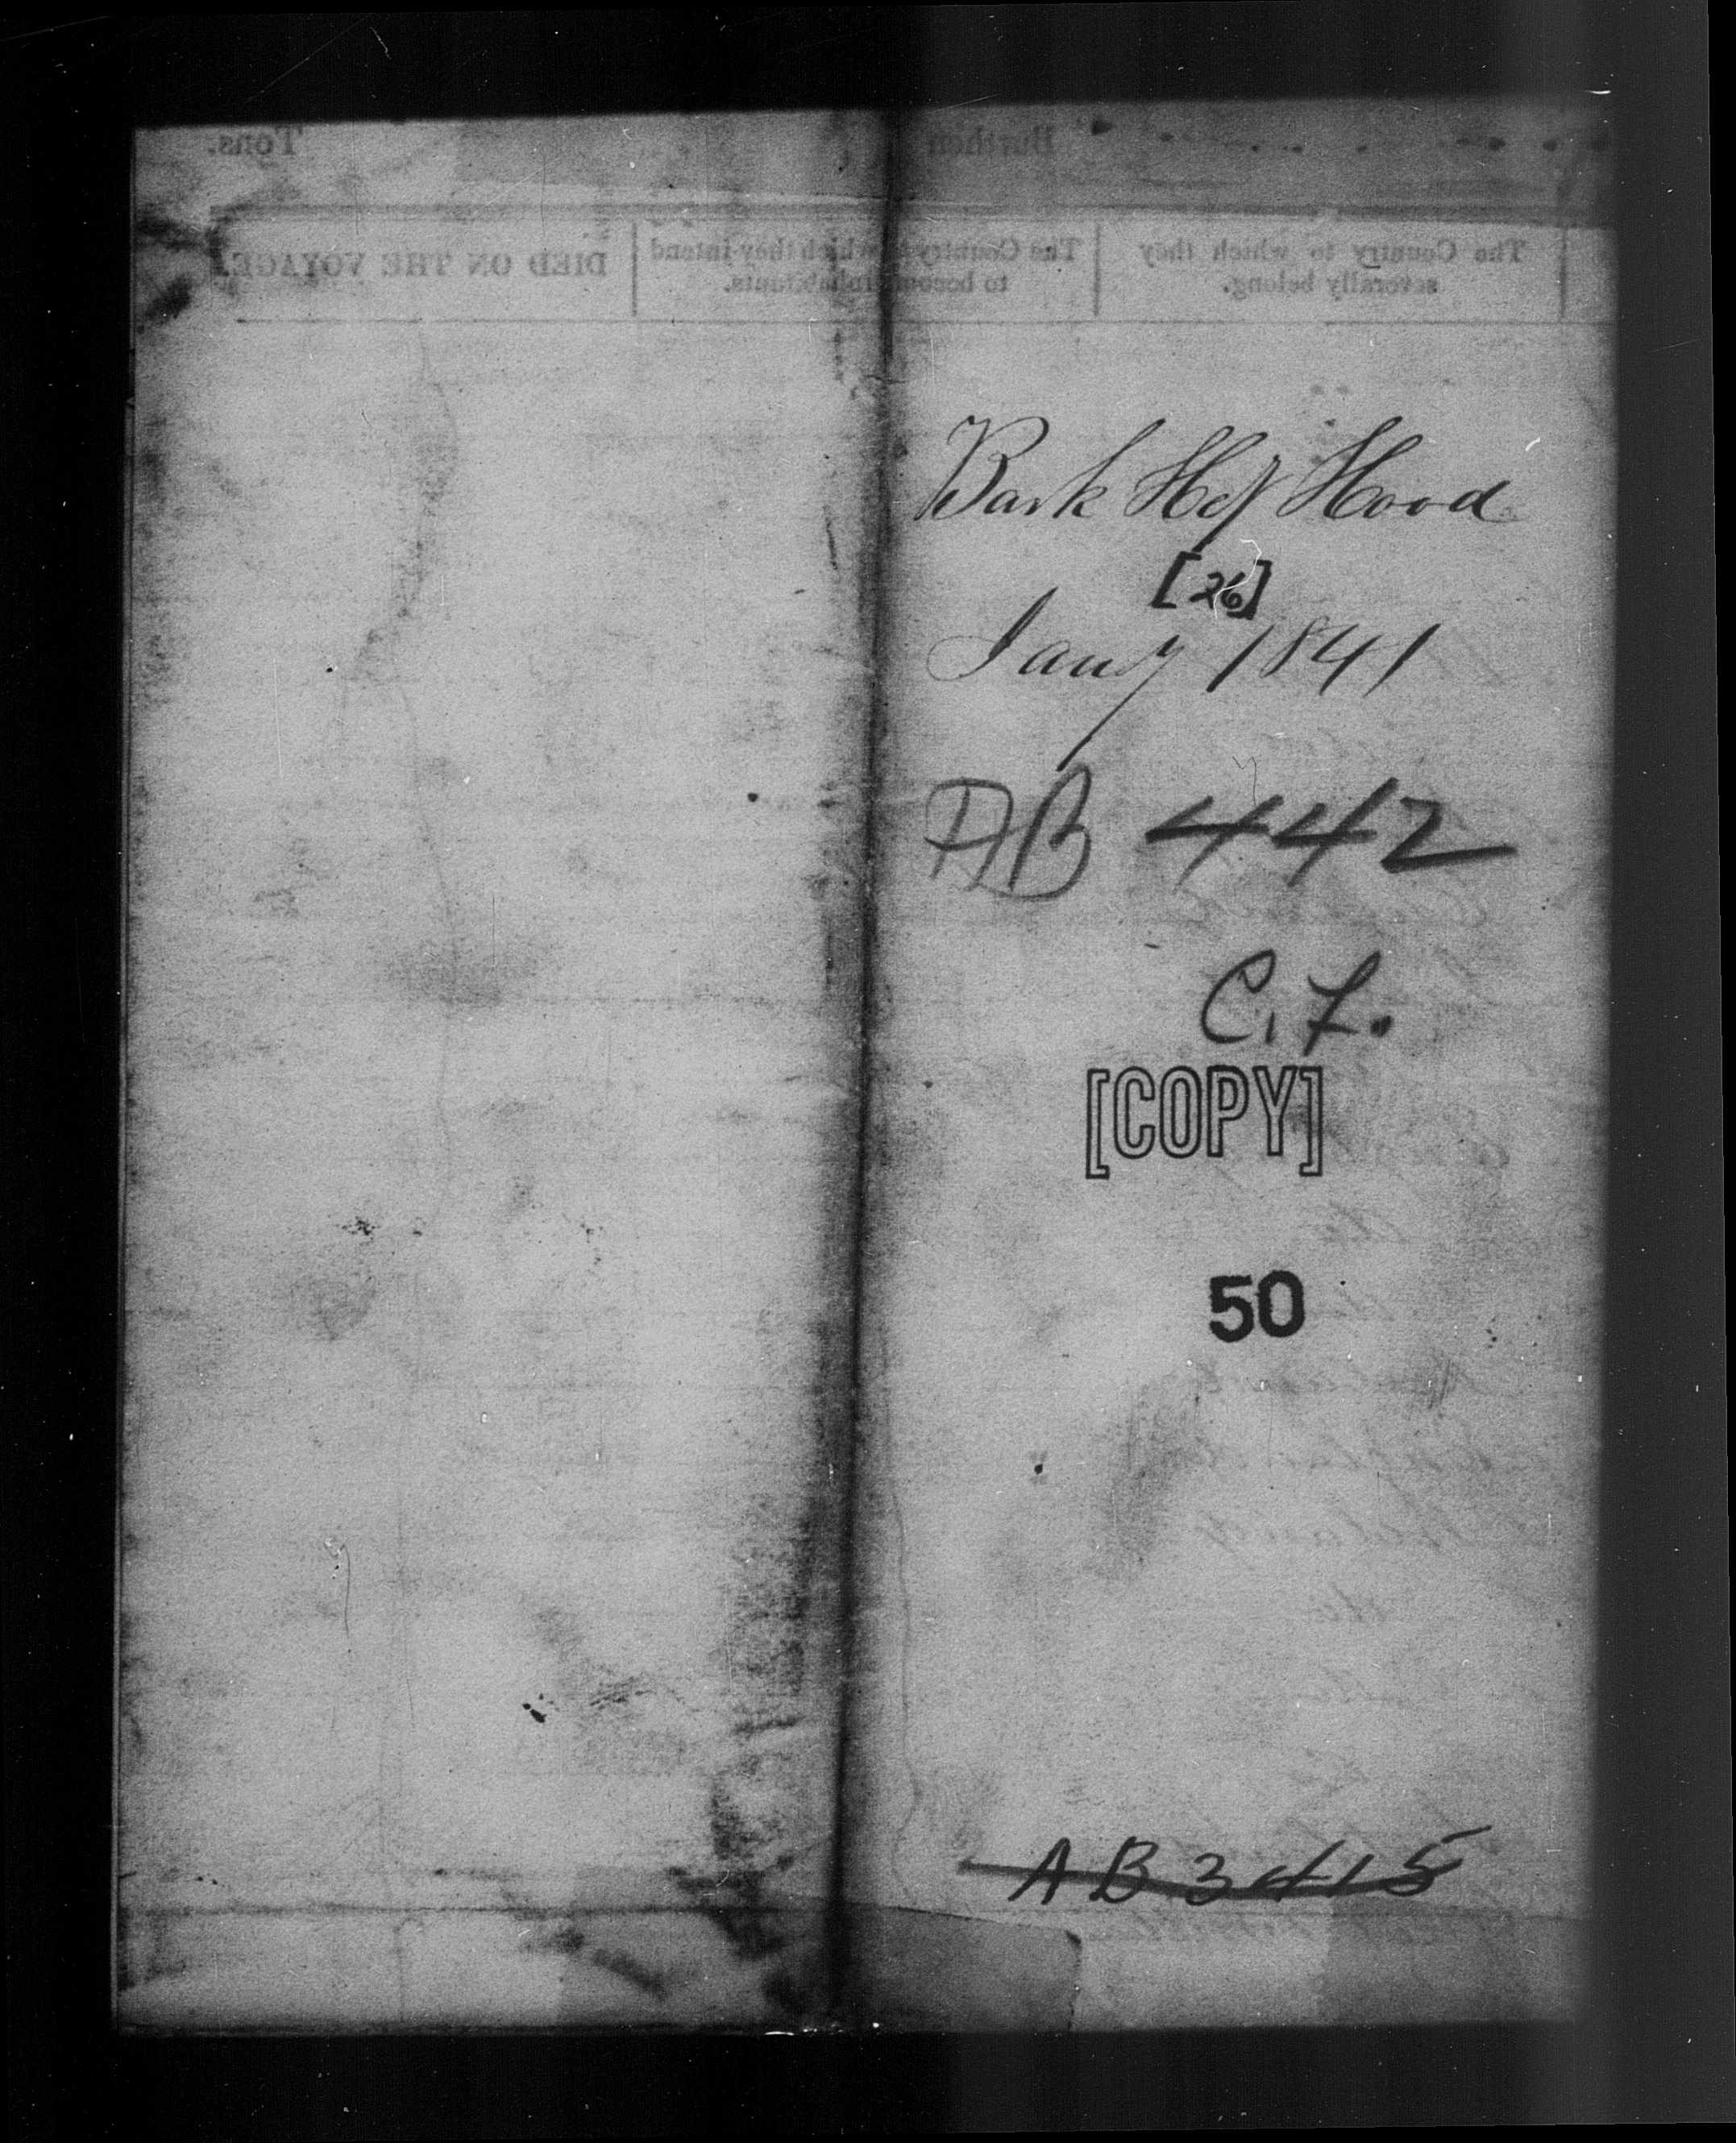 Tons.
Burthen
DIED ON THE VOYAGE.
The Country to which they intend
to become inhabitants.
The Country to which they
severally belong.
Bark Hey Hood
[26]
Jany 1841
AB 442
C. F.
[COPY]
50
AB 3415